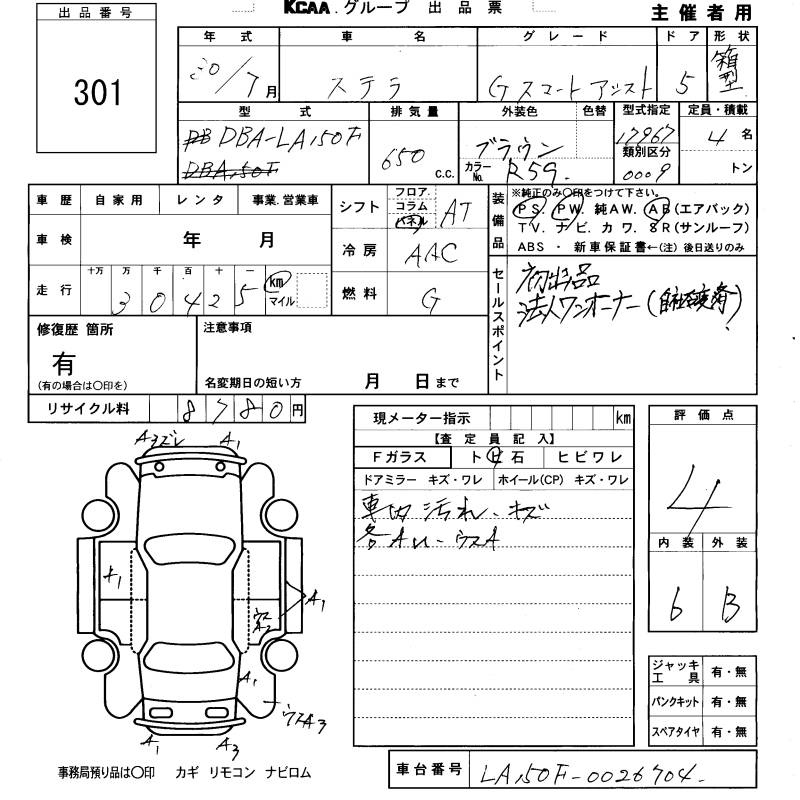 出品番号
301
KCAA.グループ 出品票
主催者用
年式 車名 グレード ドア 形状
30/7月 ステラ G スマートアシスト 5 箱型
型式 排気量 外装色 色替 型式指定 定員・積載
DBA-LA150F 650 C.C. ブラウン 17967 4名
DBA150F カラーNo. R59. 類別区分 0009 トン
車歴 自家用 レンタ 事業.営業車
車検 年 月
走行 十万 万 千 百 十 一
30425 km マイル
シフト フロア コラム パネル AT
冷房 AAC
燃料 G
装備品
※純正のみ○印をつけて下さい。
PS. PW. 純AW. AB(エアバック)
TV. ナビ. カワ. SR(サンルーフ)
ABS ・ 新車保証書←(注)後日送りのみ
セールスポイント
初出品
法人ワンオーナー
修復歴 箇所
有
(有の場合は○印を)
注意事項
名変期日の短い方 月 日まで
リサイクル料 8780円
現メーター指示 km
【査定員記入】
Fガラス ト ビ 石 ヒビワレ
ドアミラー キズ・ワレ ホイール(CP) キズ・ワレ
車内汚れ、キズ
各AU-ウスA
評価点
4
内装 外装
6 B
ジャッキ工具 有・無
パンクキット 有・無
スペアタイヤ 有・無
A3ズレ A1
A1
A1
A2
A1
ウスA3
A1 A3
事務局預り品は○印 カギ リモコン ナビロム
車台番号 LA150F-0026704